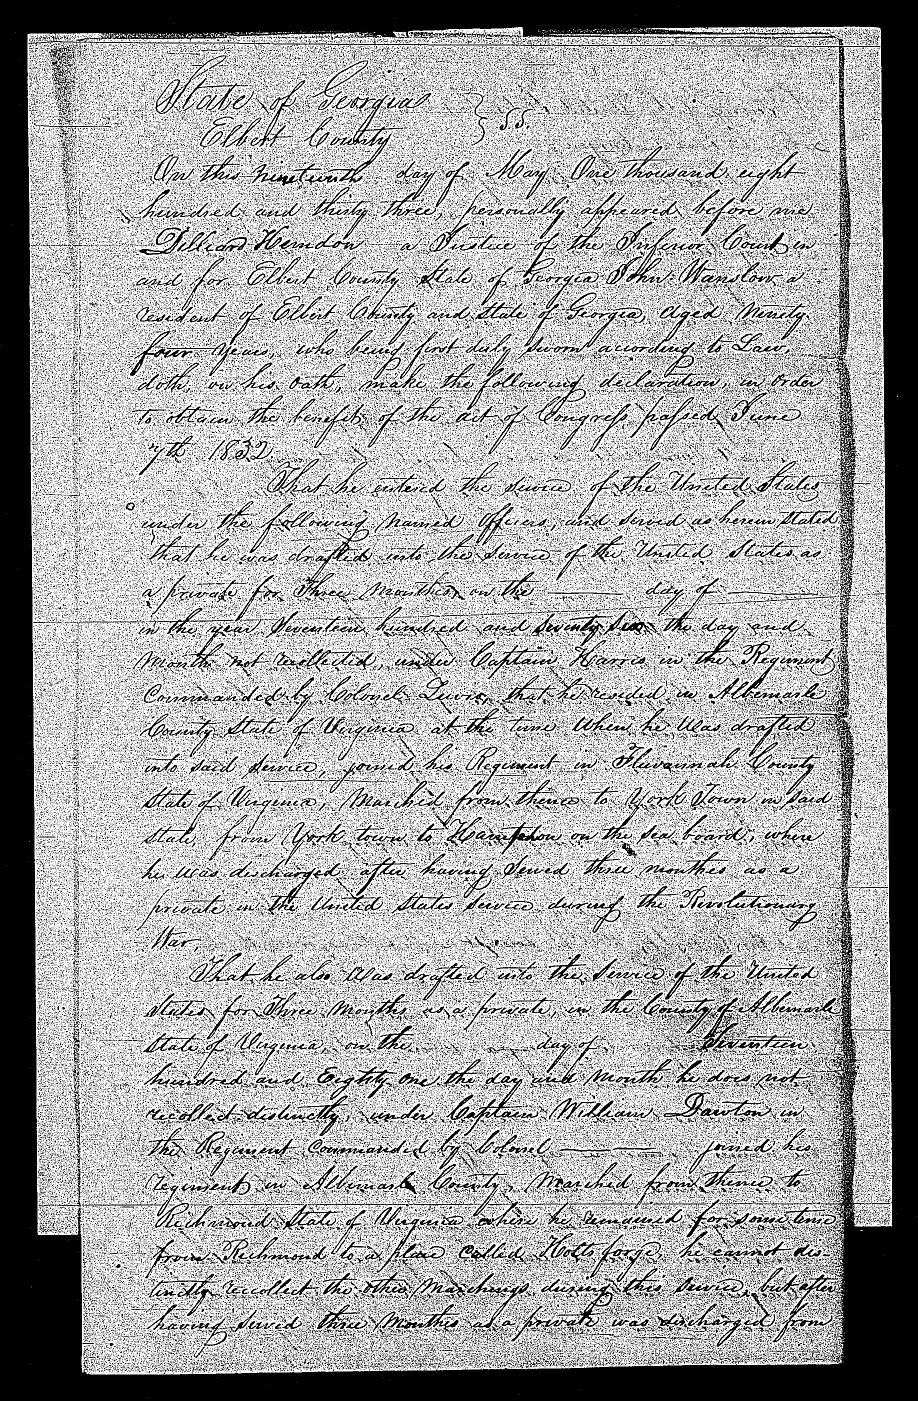 State of Georgia } SS.
Elbert County
On this nineteenth day of May One thousand eight
hundred and thirty three, personally appeared before me
Dillard Herndon a Justice of the Inferior Court in
and for Elbert County State of Georgia John Wanslow a
resident of Elbert County and State of Georgia, aged Ninety
four years, who being first duly sworn according to Law,
doth, on his oath, make the following declaration, in order
to obtain the benefit of the act of Congress passed June
7th 1832
That he entered the service of the United States
under the following named Officers, and served as herein stated
That he was drafted into the service of the United States as
a private for Three Months, on the ——— day of ———
in the year Seventeen hundred and seventy six the day and
Month not recollected, under Captain Harris in the Regiment
commanded by Colonel Lewis, that he resided in Albemarle
County State of Virginia at the time when he was drafted
into said service, joined his Regiment in Fluvannah County
State of Virginia, Marched from thence to York Town in said
state, from York town to Hampton on the sea board, where
he was discharged after having served three months as a
private in the United States service during the Revolutionary
War,
That he also was drafted into the Service of the United
States for Three Months as a private, in the County of Albemarle
State of Virginia, on the day of Seventeen
hundred and Eighty One the day and Month he does not
recollect distinctly, under Captain William Dawton in
the Regiment commanded by Colonel ——— joined his
regiment in Albemarle County, Marched from thence to
Richmond State of Virginia where he remained for some time
from Richmond to a place called Holts forge, he cannot dis-
tinctly recollect the other Marchings during this service, but after
having served three Months as a private was discharged from